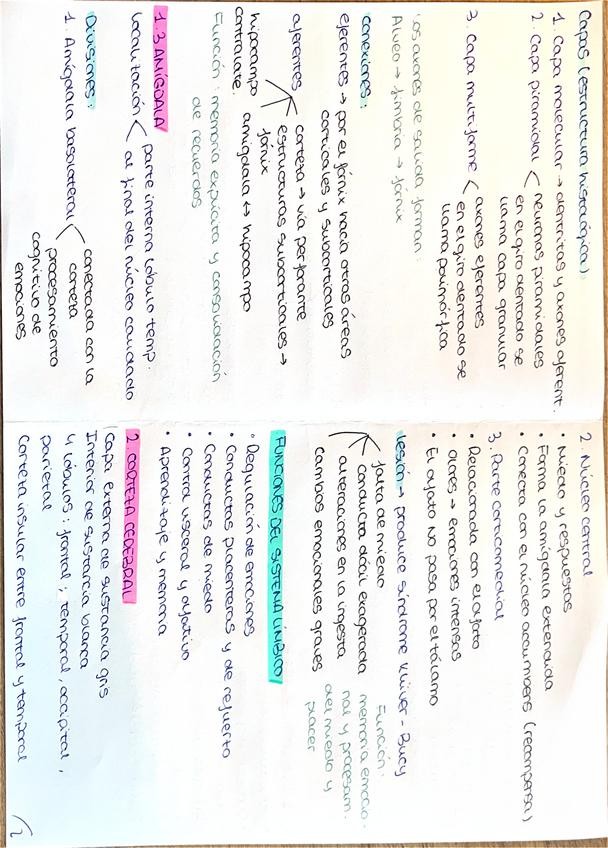 Capas (estructura histológica):
1. Capa molecular → dentritas y axones aferent.
2. Capa piramidal < neuronas piramidales
en el giro dentado se
llama capa granular
3. Capa multiforme < axones eferentes
en el giro dentado se
llama polimórfica
Los axones de salida forman:
Alveo → fimbria → fórnix
Conexiones:
eferentes → por el fórnix hacia otras áreas
corticales y subcorticales
aferentes
corteza → vía perforante
estructuras subcorticales →
fórnix
hipocampo
contralate.
amígdala ↔ hipocampo
Función: memoria explícita y consolidación
de recuerdos
1.3 AMÍGDALA
Localización < parte interna lóbulo temp.
al final del núcleo caudado
Divisiones:
1. Amígdala basolateral < conectada con la
corteza
procesamiento
cognitivo de
emociones
2. Núcleo central
• Miedo y respuestas
• Forma la amígdala extendida
• Conecta con el núcleo accumbens (recompensa)
3. Parte corticomedial
• Relacionada con el olfato
• Olores → emociones intensas
• El olfato NO pasa por el tálamo
Lesión → produce síndrome Klüver-Bucy
falta de miedo
conducta dócil exagerada
alteraciones en la ingesta
cambios emocionales graves
Función:
memoria emocio-
nal y procesam.
del miedo y
placer
FUNCIONES DEL SISTEMA LÍMBICO
• Regulación de emociones
• Conductas placenteras y de refuerzo
• Conductas de miedo
• Control visceral y olfativo
• Aprendizaje y memoria
2. CORTEZA CEREBRAL
Capa externa de sustancia gris
Interior de sustancia blanca
4 lóbulos: frontal, temporal, occipital,
parietal
Corteza insular entre frontal y temporal